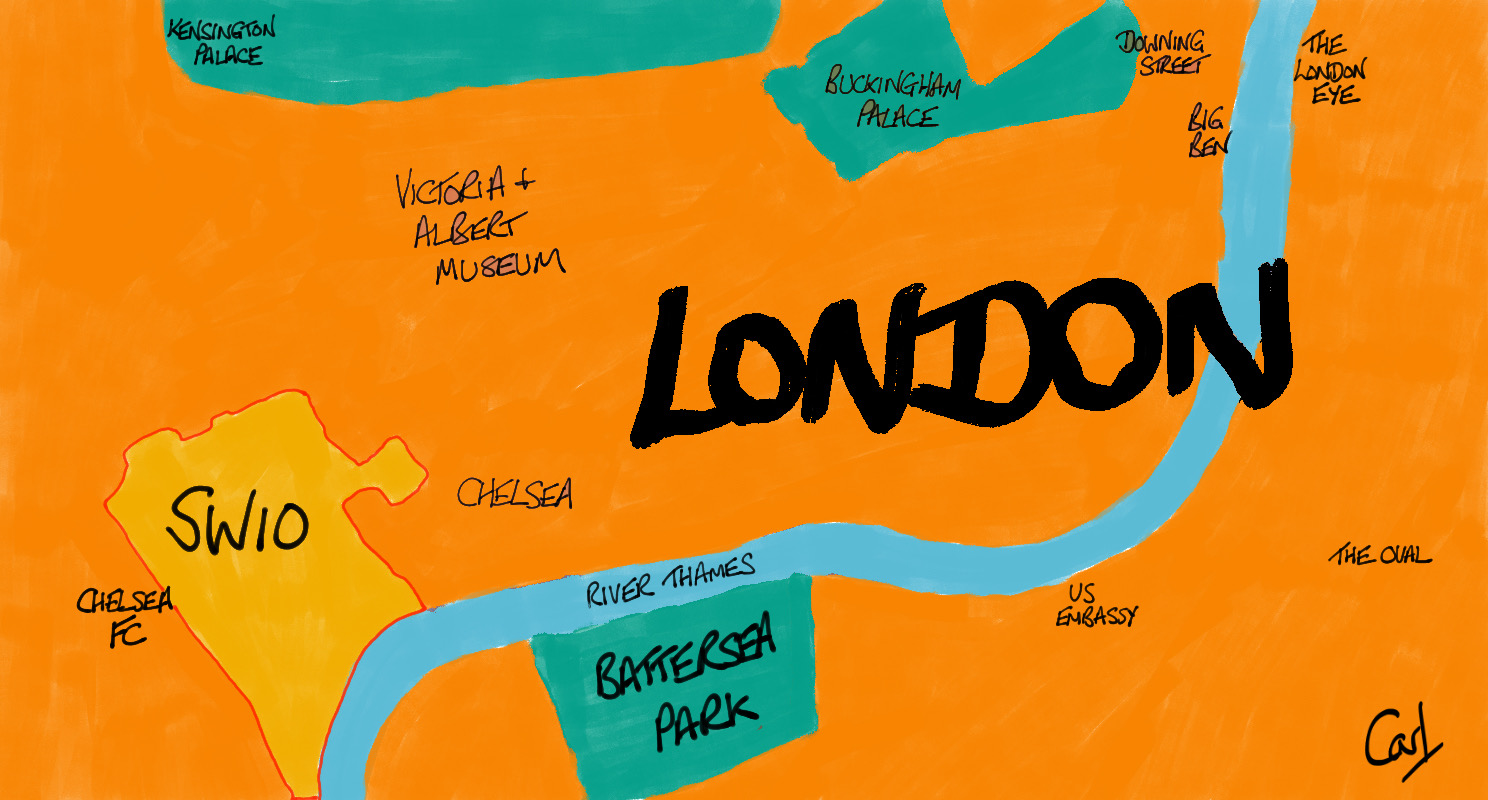 KENSINGTON
PALACE
BUCKINGHAM
PALACE
DOWNING
STREET
THE
LONDON
EYE
BIG
BEN
VICTORIA +
ALBERT
MUSEUM
LONDON
SW10
CHELSEA
CHELSEA
FC
RIVER THAMES
BATTERSEA
PARK
US
EMBASSY
THE OVAL
Carl